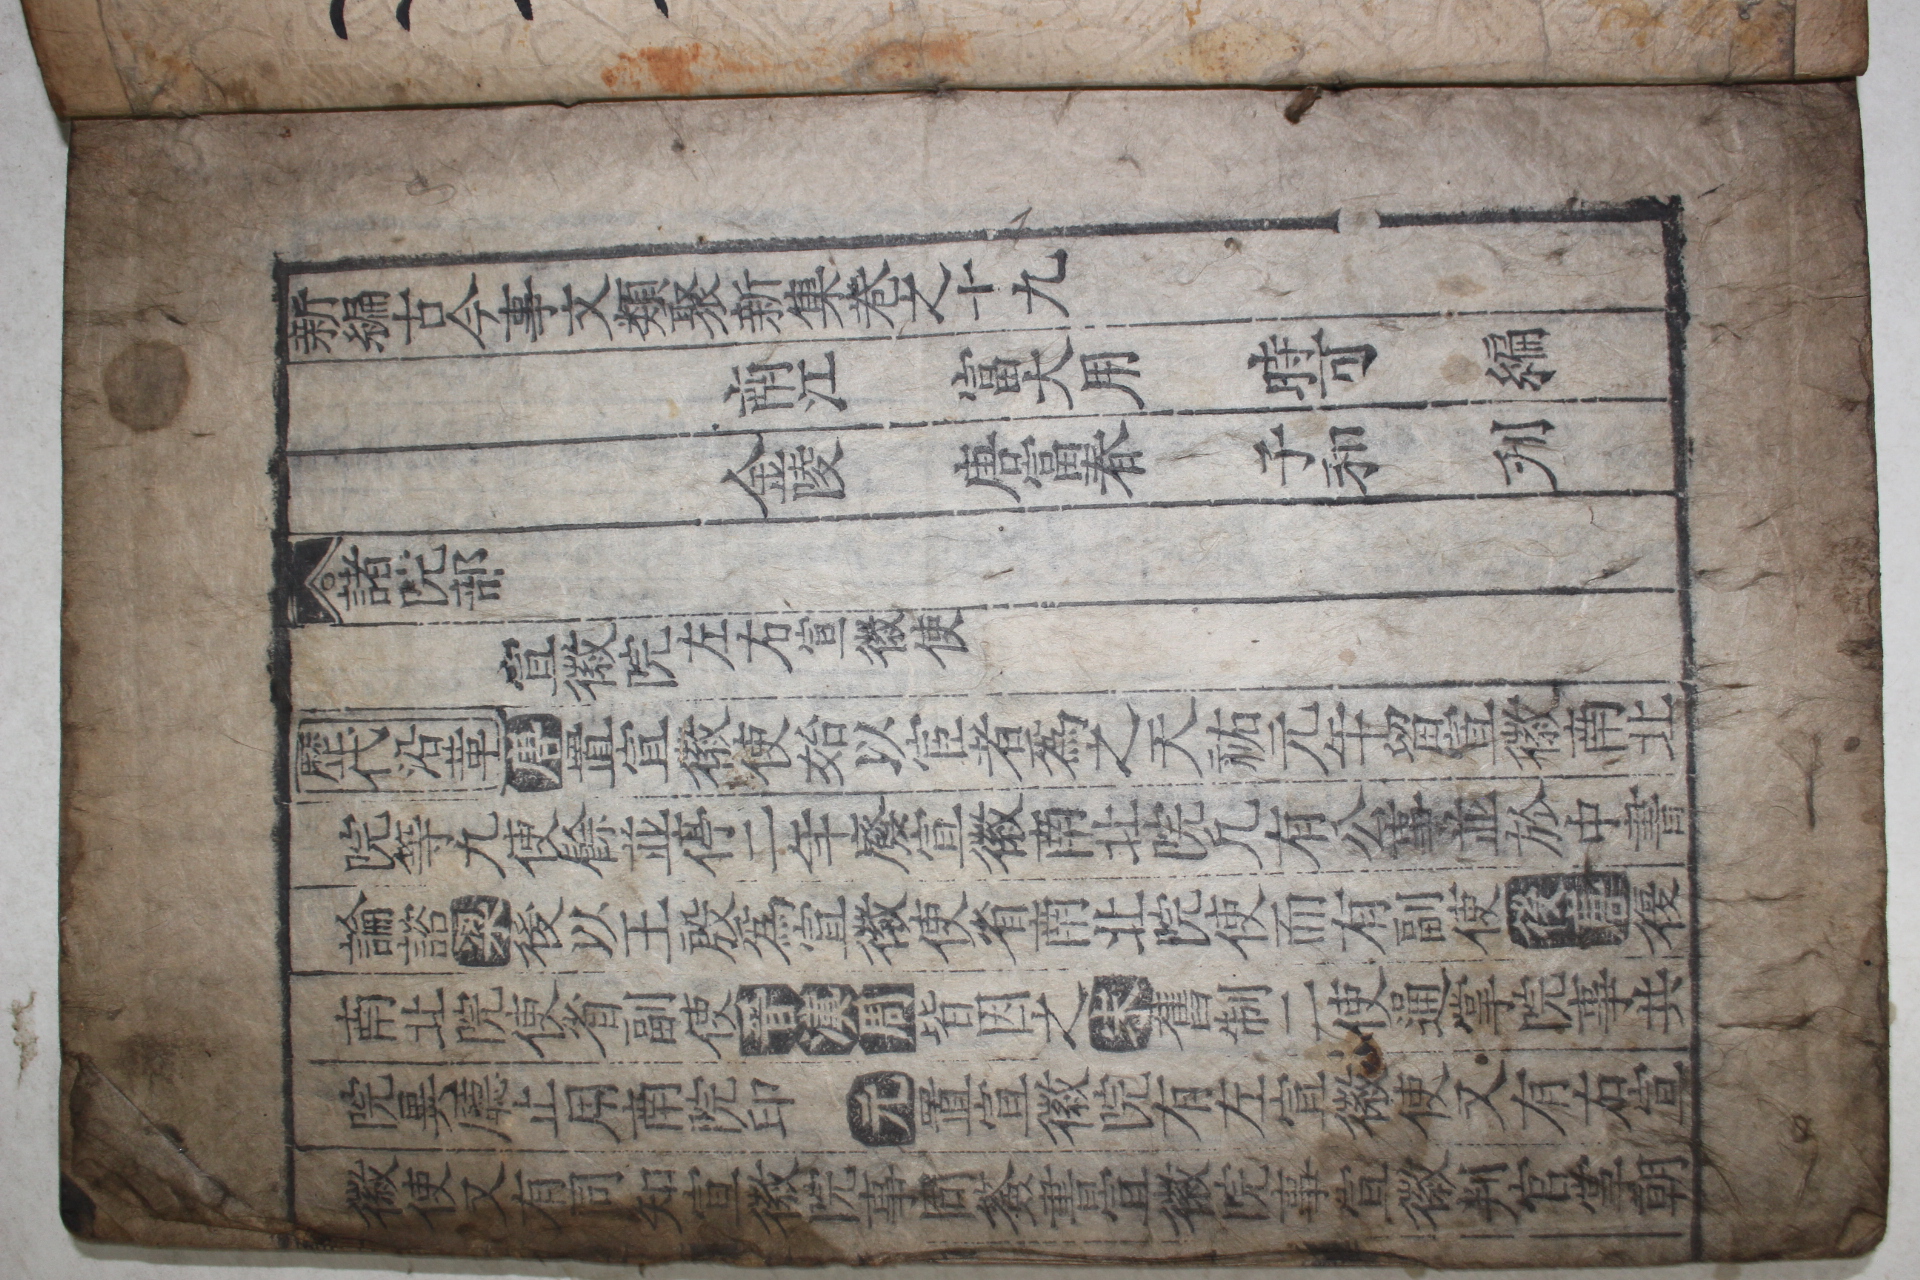 新編古今事文類聚新集卷之十九
南江 富大用 時可 編
金陵 唐富春 子和 刋
諸院部
宣徽院左右宣徽使
歷代沿革 唐置宣徽使始以宦者爲之天祐元年留宣徽南北
院等九使餘並停二年廢宣徽南北院凡有公事並於中書
論諮梁後以王殷爲宣徽使省南北院使而有副使後唐復
南北院使省副使晉漢周皆因之宋舊制二使通掌院事共
院異廳止用南院印 元置宣徽院有左宣徽使又有右宣
徽使又有同知宣徽院事同簽書宣徽院事宣徽判官掌朝